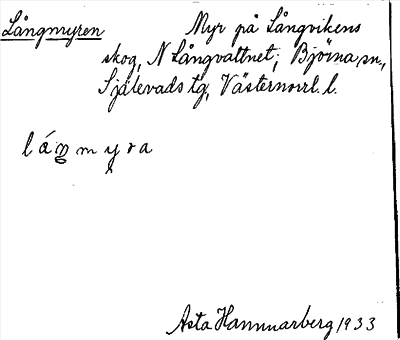 Långmyren Myr på Långvikens
skog, N Långvattnet; Björna sn.,
Själevads tg, Västernorrl. l.
låŋmyra
Asta Hammarberg 1933